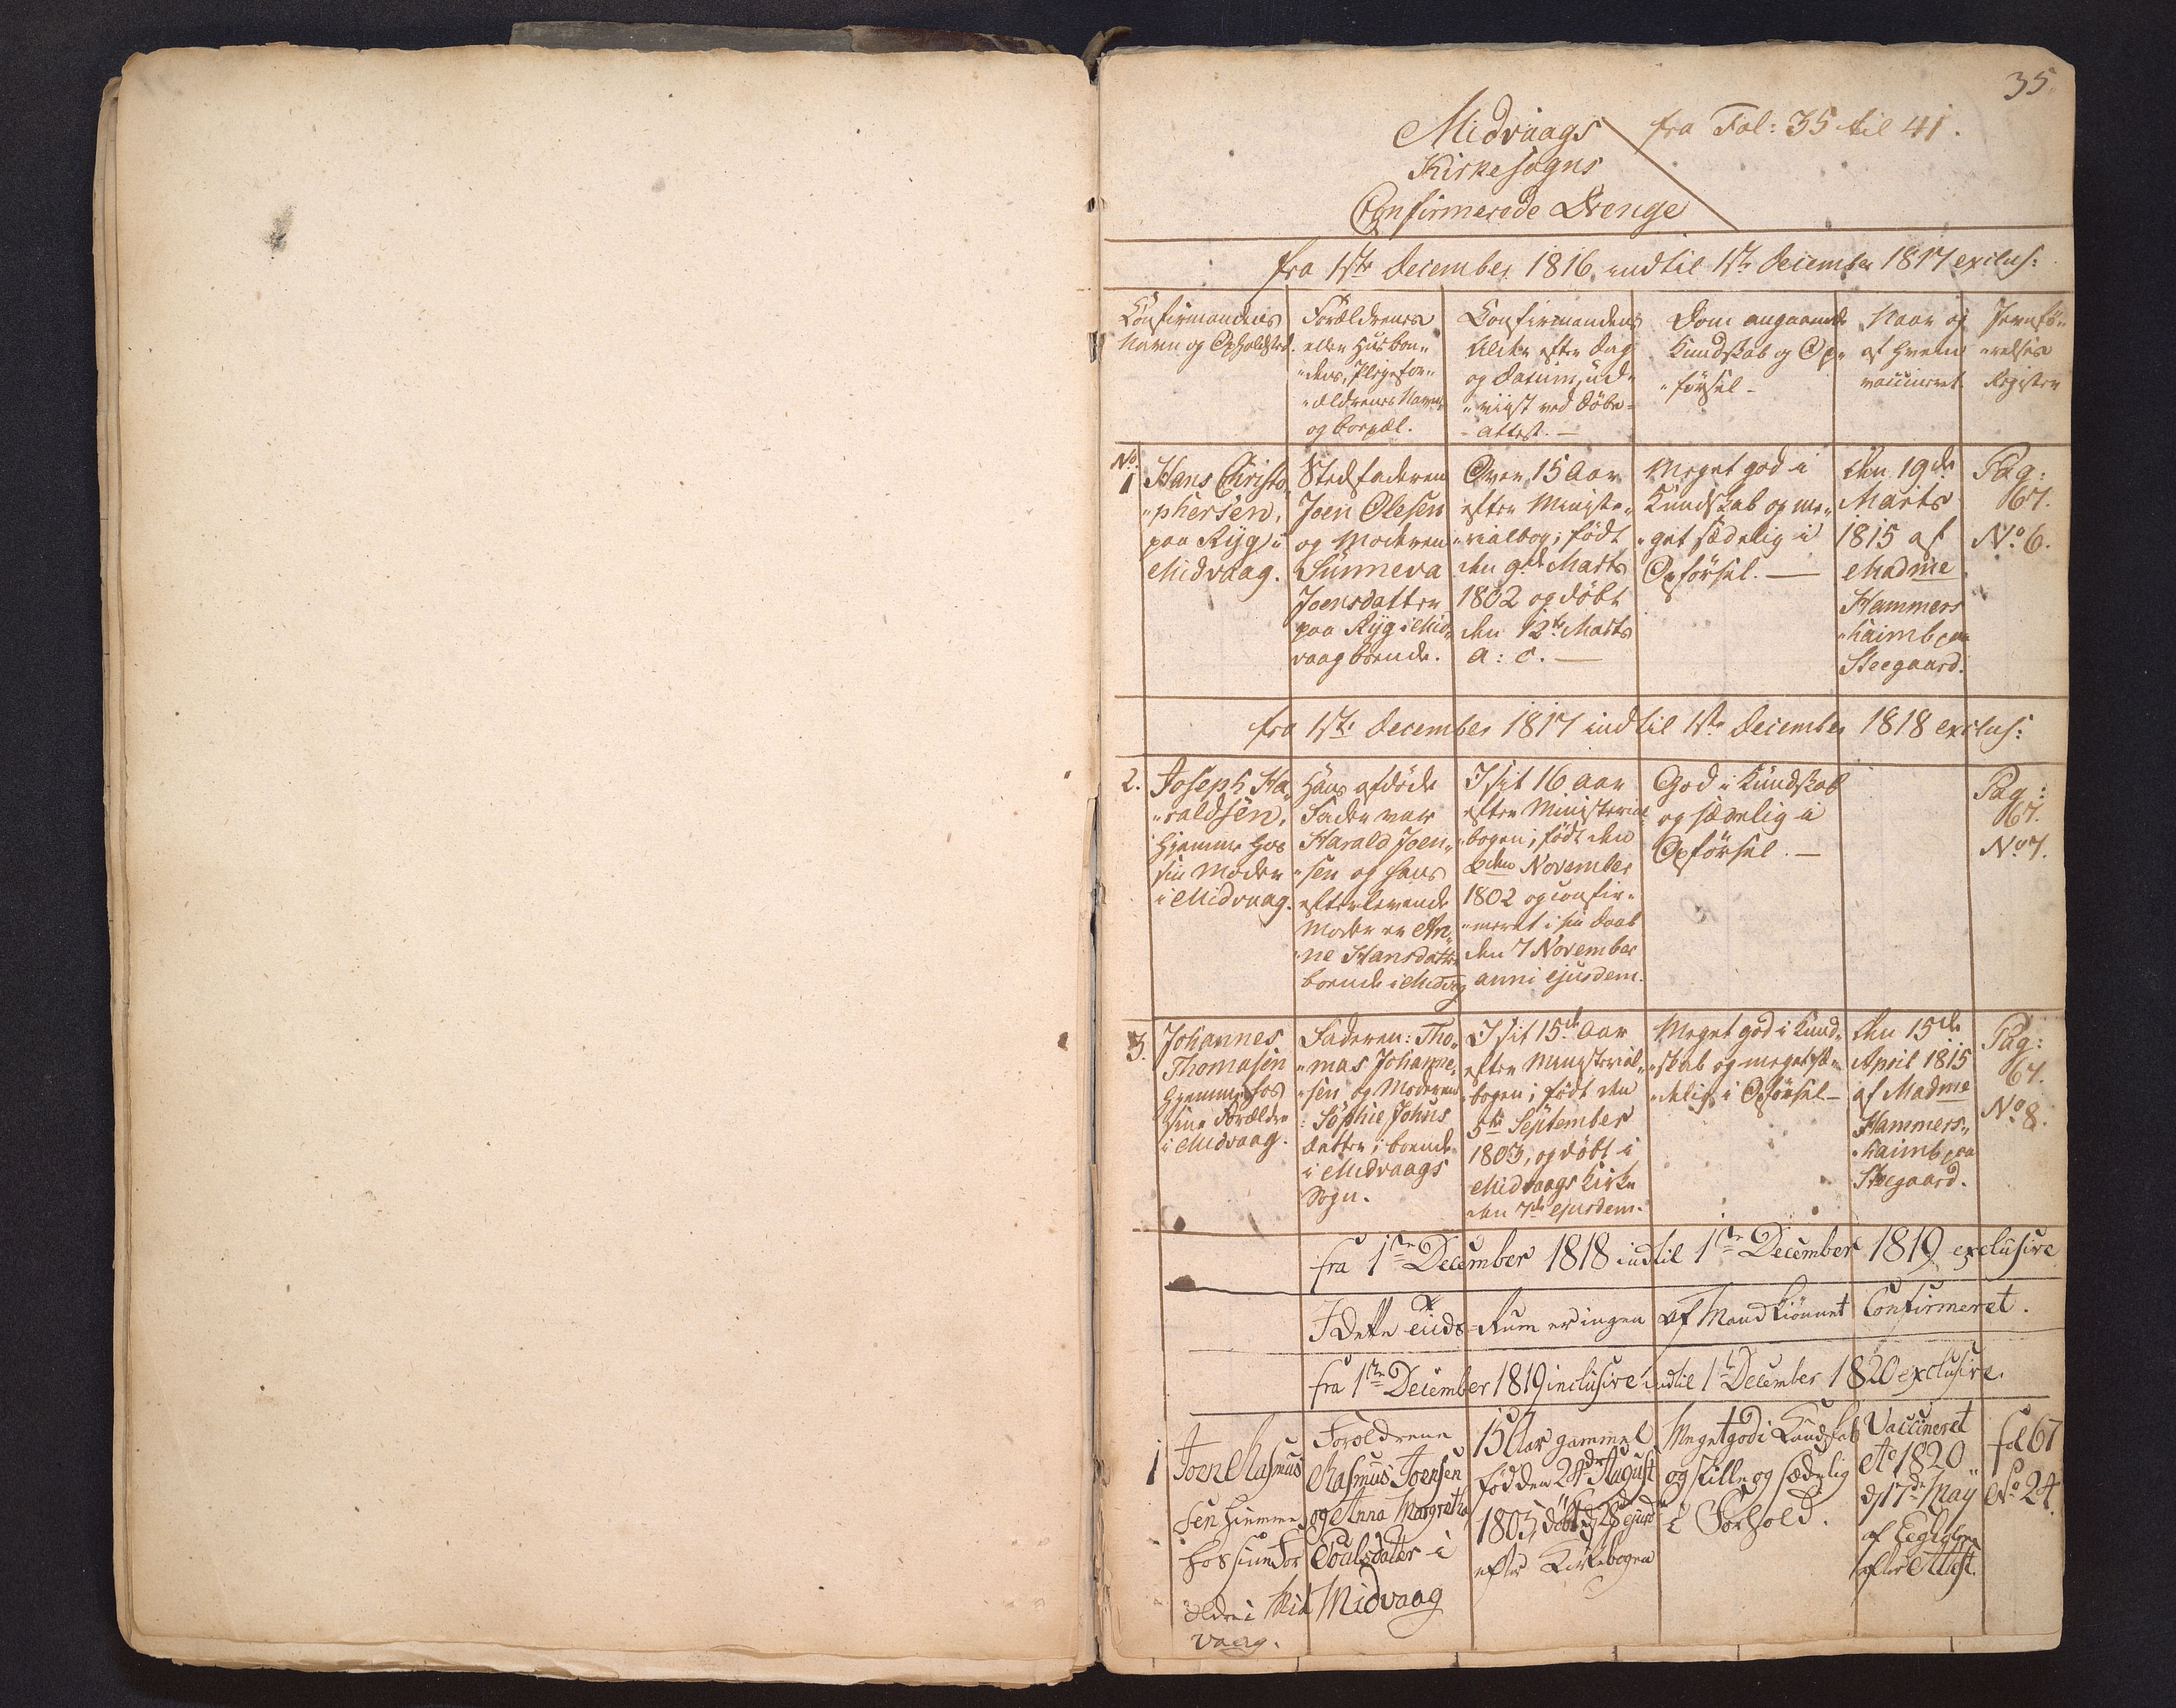 35
Midvaags fra Fol: 35 til 41.
Kirkesogns
Confirmerede Drenge
fra 1ste December 1816 indtil 1ste December 1817 exclus:
Confirmandens
Navn og Opholdsted.
Forældrenes
eller Huusbon„
„dens, Plejefor„
„ældrenes Navne
og boepæl.
Confirmandens
Alder efter Dag
og Datum, ud„
„viist ved Döbe-
-attest. —
Dom angaaende
Kundskab og Op„
„försel -
Naar og
af hvem
vaccineret
Jevnfö„
„relses
Register
No.
1
Hans Christo„
„phersen,
paa Ryg i
Midvaag.
Stedfaderen
Joen Olesen
og Moderen
Sunneva
Joensdatter
paa Ryg i Mid„
vaag boende.
Over 15 Aar
efter Ministe„
„rialbog; födt
den 9de Marts
1802 og döbt
den 12te Marts
a: c. —
Meget god i
Kundskab og me„
„get sædelig i
Opförsel. —
den 19de
Marts
1815 af
Madme
Hammers
„haimb paa
Steegaard.
Pag:
67.
No 6.
fra 1ste December 1817 indtil 1ste December 1818 exclus:
2.
Joseph Ha„
„raldsen,
hjemme hos
sin Moder
i Midvaag.
Hans afdöde
Fader var
Harald Joen„
„sen og hans
efterlevende
Moder er An„
„ne Hansdatter
boende i Midvg
I sit 16 aar
efter Ministerial
„bogen; födt den
2den November
1802 og confir„
„meret i sin Daab
den 7 November
anni ejusdem.
God i Kundskab
og sædelig i
Opförsel. —
Pag:
67.
No 7.
3.
Johannes
Thomasen
hjemme hos
sine Forældre
i Midvaag.
Faderen: Tho„
„mas Johanne„
„sen og Moderen
: Sophie Johns
datter; boende
i Midvaags
Sogn.
I sit 15de Aar
efter Ministerial„
„bogen; födt den
5te September
1803, og döbt i
Midvaags Kirke
den 7de ejusdem.
Meget god i Kund„
„skab og meget sæ„
„delig i Opförsel —
den 15de
April 1815
af Madme
Hammers„
„haimb paa
Steegaard.
Pag:
67.
No 8.
fra 1ste December 1818 indtil 1ste December 1819 exclusive
I dette Tiids-Rum er ingen af Mandkiönnet Confirmeret.
fra 1ste December 1819 inclusive indtil 1ste December 1820 exclusive.
1
Joen Rasmus
sen hiemme
hos sine For
ældre i Mid
vaag.
Foreldrene
Rasmus Joensen
og Anna Margretha
Poulsdatter i
Midvaag
15 Aar gammel
föd den 24de August
1803, döbt d 28 ejusd
efter Kirkebogen
Meget god i Kundskab
og stille og sædelig
i Forhold.
Vaccineret
Ao 1820
d 17de May
af
efter Attest.
fol 67
No 24.